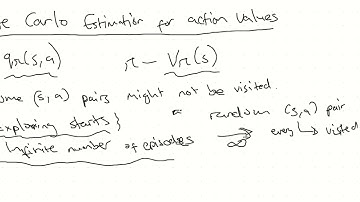 e Carlo Estimation for action values
qπ(s,a) π – Vπ(s)
ome (s,a) pairs might not be visited.
exploring starts } * random (s,a) pair
Infinite number of episodes ∞ every ↳ visited